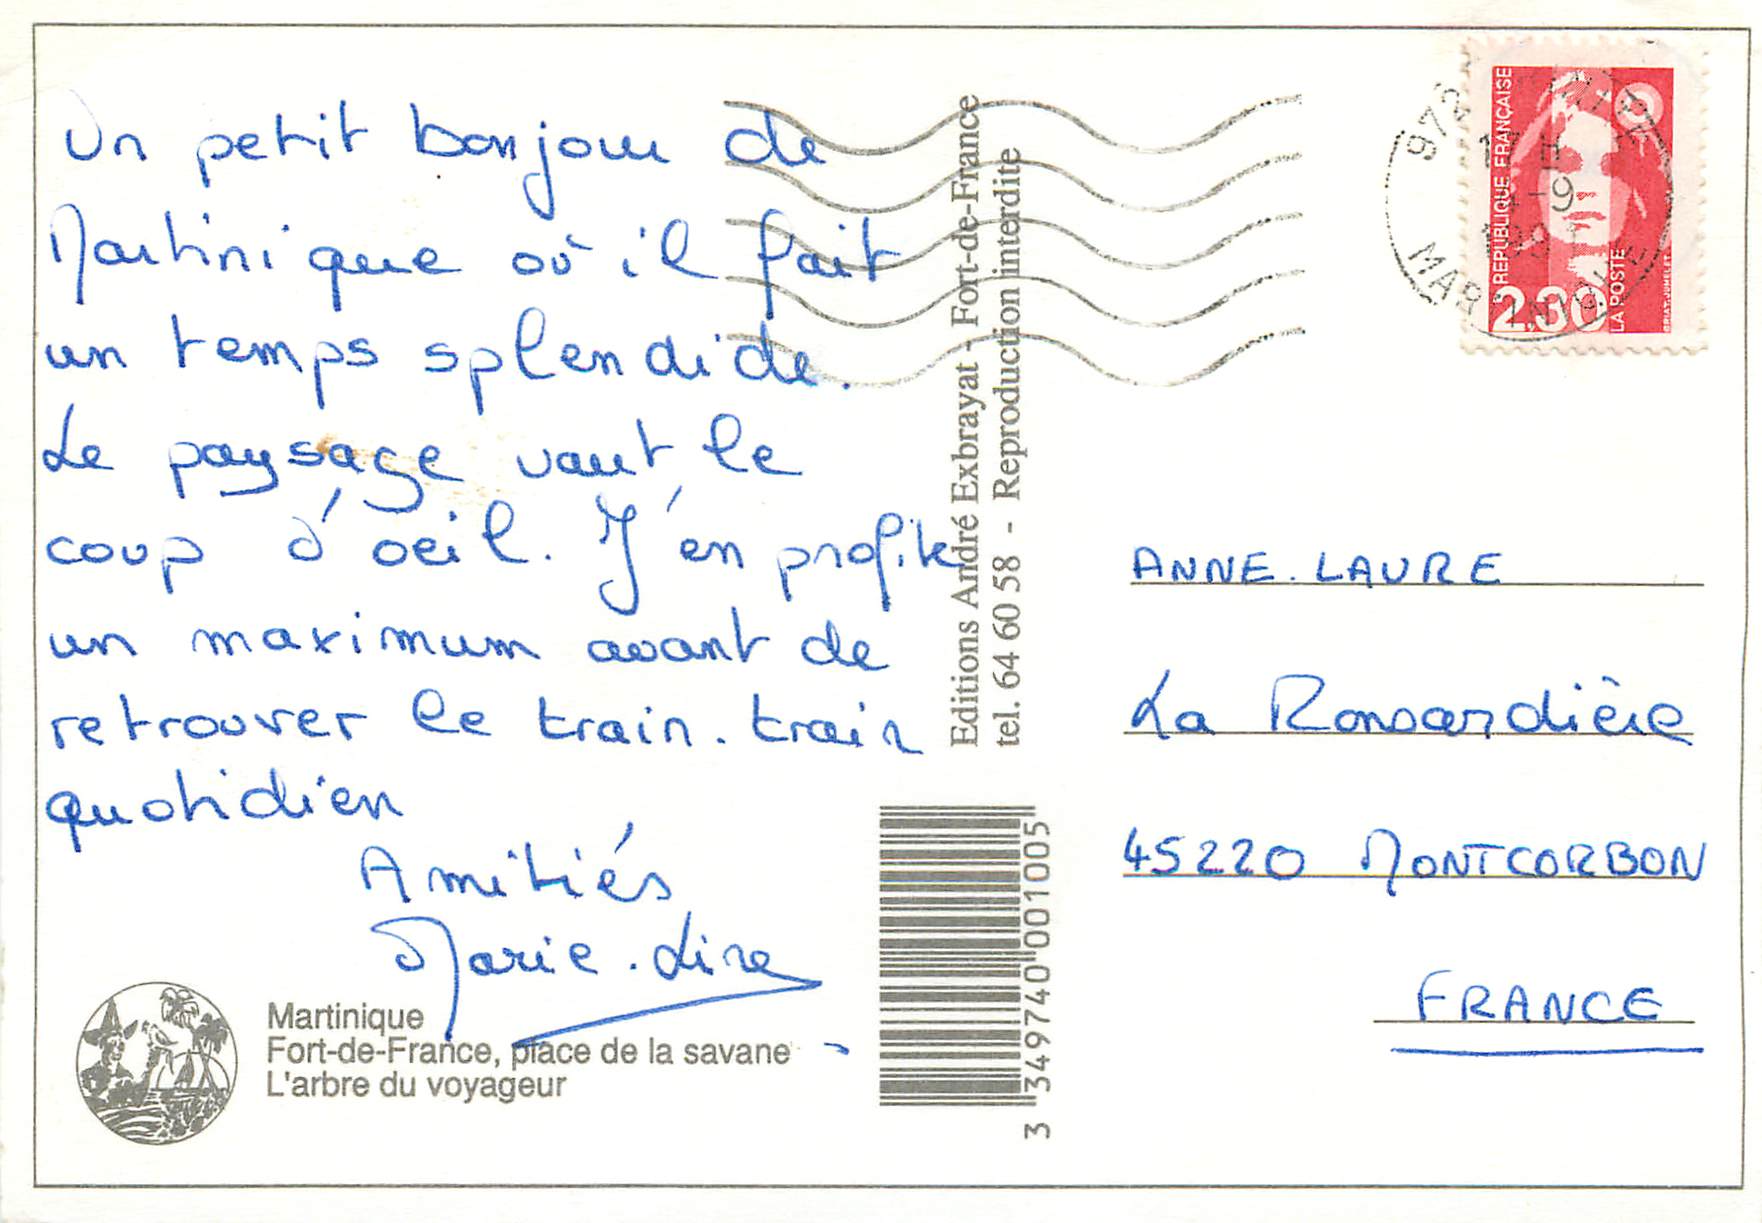 Un petit bonjour de
Martinique où il fait
un temps splendide.
Le paysage vaut le
coup d'oeil. J'en profite
un maximum avant de
retrouver le train-train
quotidien
Amitiés
Marie-Line
Martinique
Fort-de-France, place de la savane
L'arbre du voyageur
Editions André Exbrayat - Fort-de-France
tel. 64 60 58 - Reproduction interdite
3 349740 001005
RÉPUBLIQUE FRANÇAISE
2,80
LA POSTE
BRIAT-JUMELET
MARTINIQUE
ANNE-LAURE
La Ronsardière
45220 MONTCORBON
FRANCE